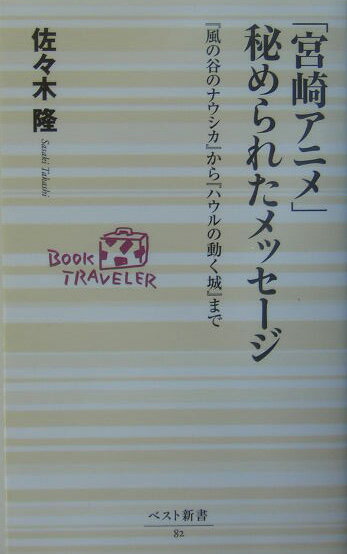 「宮崎アニメ」
秘められたメッセージ
『風の谷のナウシカ』から『ハウルの動く城』まで
佐々木 隆
Sasaki Takashi
BOOK
TRAVELER
ベスト新書
82